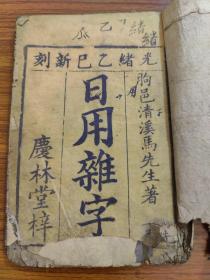 光緒乙巳新刻
朐邑清溪馬先生著
日用雜字
慶林堂梓